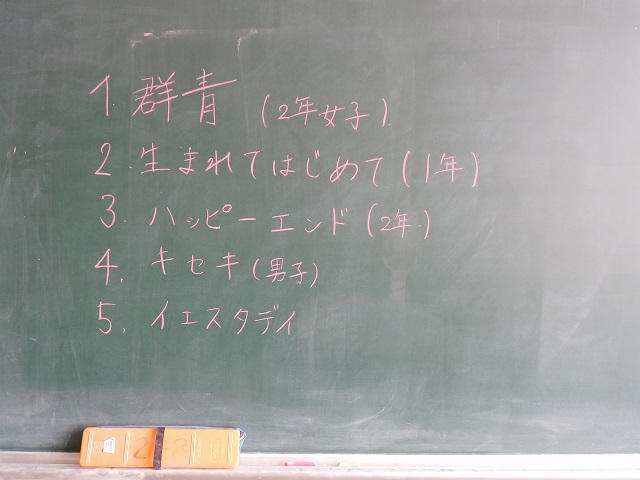 1. 群青 (2年女子)
2. 生まれてはじめて (1年)
3. ハッピーエンド (2年)
4. キセキ (男子)
5. イエスタデイ
2-3